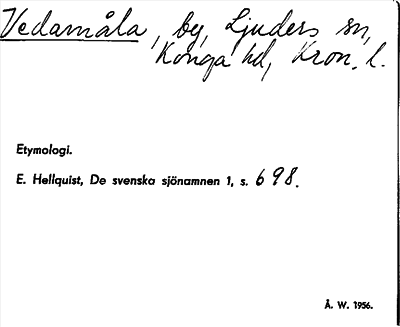 Vedamåla, by, Ljuders sn,
Konga hd, Kron. l.
Etymologi.
E. Hellquist, De svenska sjönamnen 1, s. 698.
Å. W. 1956.